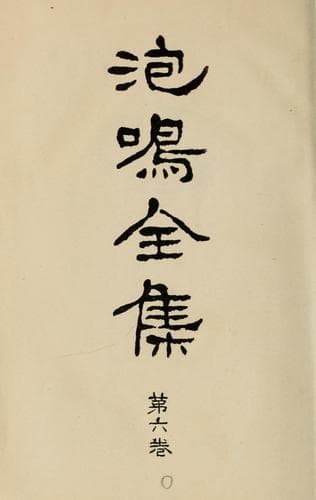 泡鳴全集
第六巻